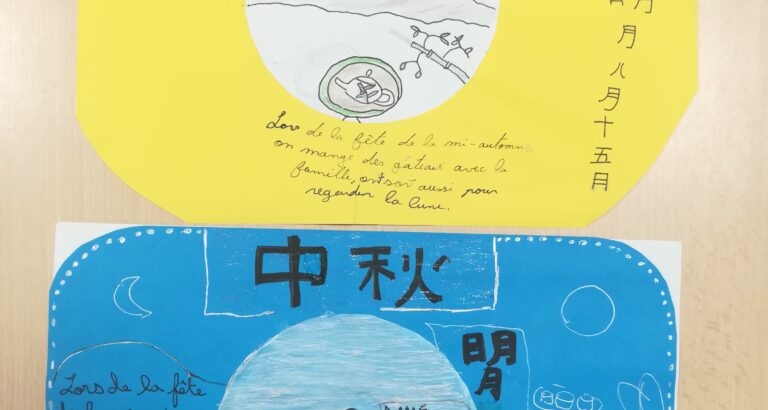 月
月
八
月
十
五
月
Lors de la fête de la mi-automne
on mange des gâteau avec la
famille, on sort aussi pour
regarder la lune.
中秋
明
月
Lors de la fête